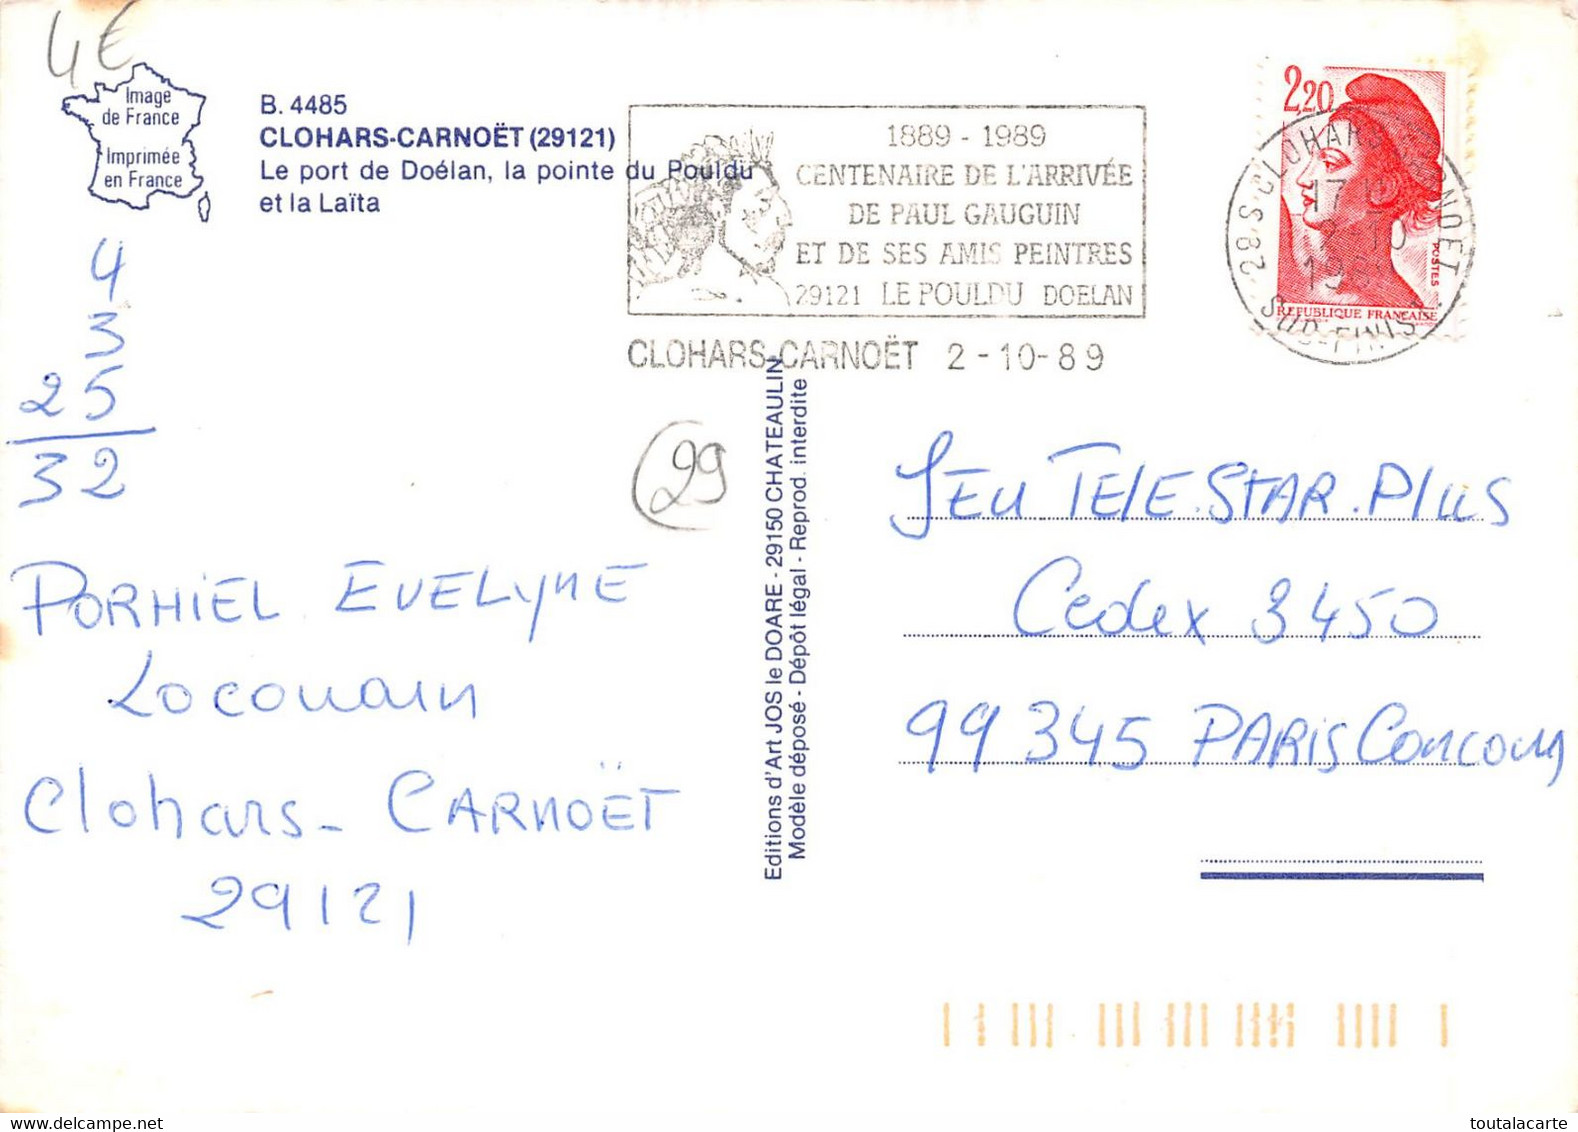 4€
Image
de France
Imprimée
en France
B. 4485
CLOHARS-CARNOËT (29121)
Le port de Doélan, la pointe du Pouldu
et la Laïta
1889 - 1989
CENTENAIRE DE L'ARRIVÉE
DE PAUL GAUGUIN
ET DE SES AMIS PEINTRES
29121 LE POULDU DOELAN
CLOHARS-CARNOËT 2-10-89
2,20
POSTES
REPUBLIQUE FRANÇAISE
CLOHARS CARNOET
17 H
2-10
SUD-FINIS
4
3
25
32
29
PORHIEL EVELYNE
Locouarn
Clohars - CARNOËT
29121
Editions d'Art JOS le DOARE - 29150 CHATEAULIN
Modèle déposé - Dépôt légal - Reprod. interdite
JEU TELE.STAR.Plus
Cedex 3450
99 345 PARIS Concours
toutalacarte